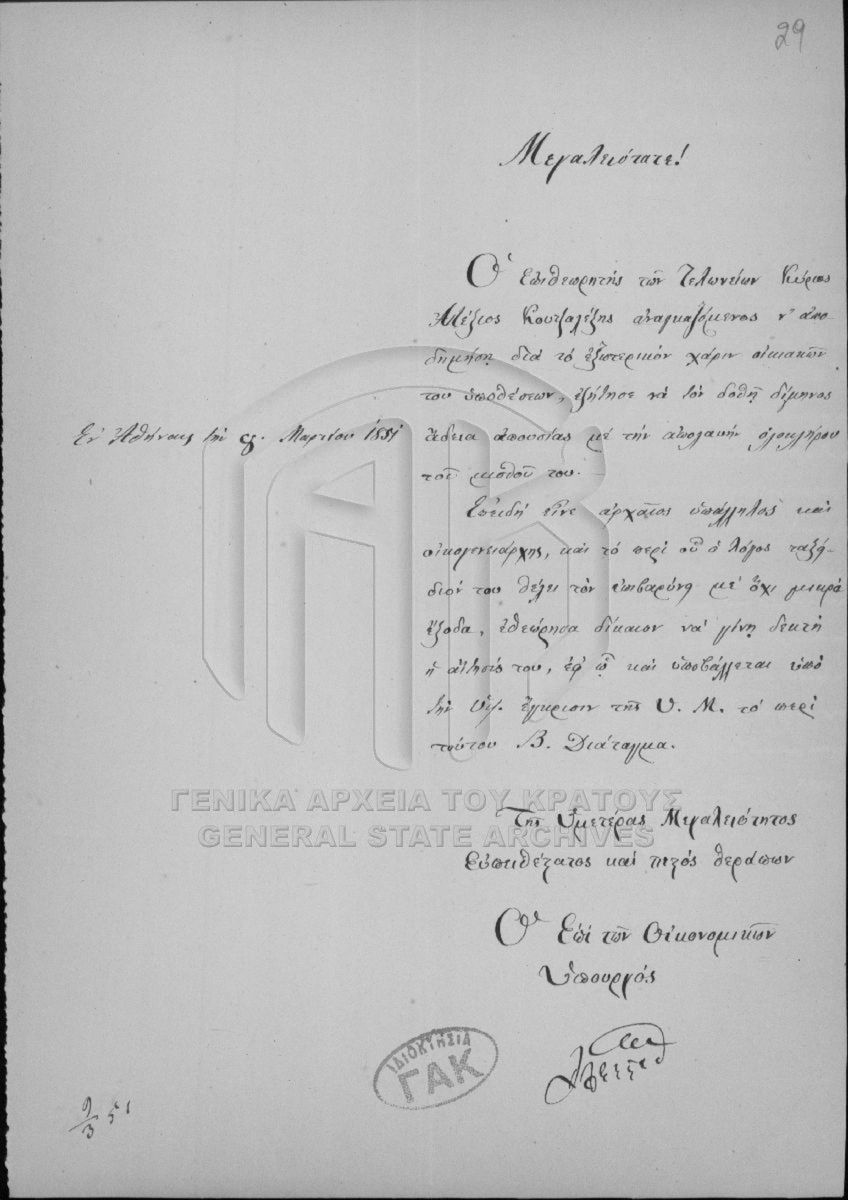 29
Μεγαλειότατε!
Ὁ Ἐπιθεωρητής τῶν Τελωνείων Κύριος
Ἀλέξιος Κουτζαλέξης ἀναγκαζόμενος ν' ἀπο-
δημήσῃ διὰ τὸ ἐξωτερικόν χάριν οἰκιακῶν
του ὑποθέσεων, ἐζήτησε νὰ τὸν δοθῇ δίμηνος
Ἐν Ἀθήναις τὴν 9. Μαρτίου 1851
ἄδεια ἀπουσίας μὲ τὴν ἀπολαυήν ὁλοκλήρου
τοῦ μισθοῦ του.
Ἐπειδή εἶνε ἀρχαῖος ὑπάλληλος καὶ
οἰκογενειάρχης, καὶ τὸ περὶ οὗ ὁ λόγος ταξεί-
διόν του θέλει τὸν ἐπιβαρύνῃ μὲ ὄχι μικρὰ
ἔξοδα, ἐθεώρησα δίκαιον νὰ γίνῃ δεκτή
ἡ αἴτησίς του, ἐφ' ᾧ καὶ ὑποβάλλεται ὑπὸ
τὴν Ὑψ. ἔγκρισιν τῆς Υ. Μ. τὸ περὶ
τούτου Β. Διάταγμα.
ΓΕΝΙΚΑ ΑΡΧΕΙΑ ΤΟΥ ΚΡΑΤΟΥΣ
GENERAL STATE ARCHIVES
Τῆς Ὑμετέρας Μεγαλειότητος
Εὐπειθέστατος καὶ πιστός θεράπων
Ὁ Ἐπὶ τῶν Οἰκονομικῶν
Ὑπουργός
ΙΔΙΟΚΤΗΣΙΑ
ΓΑΚ
9/3 51